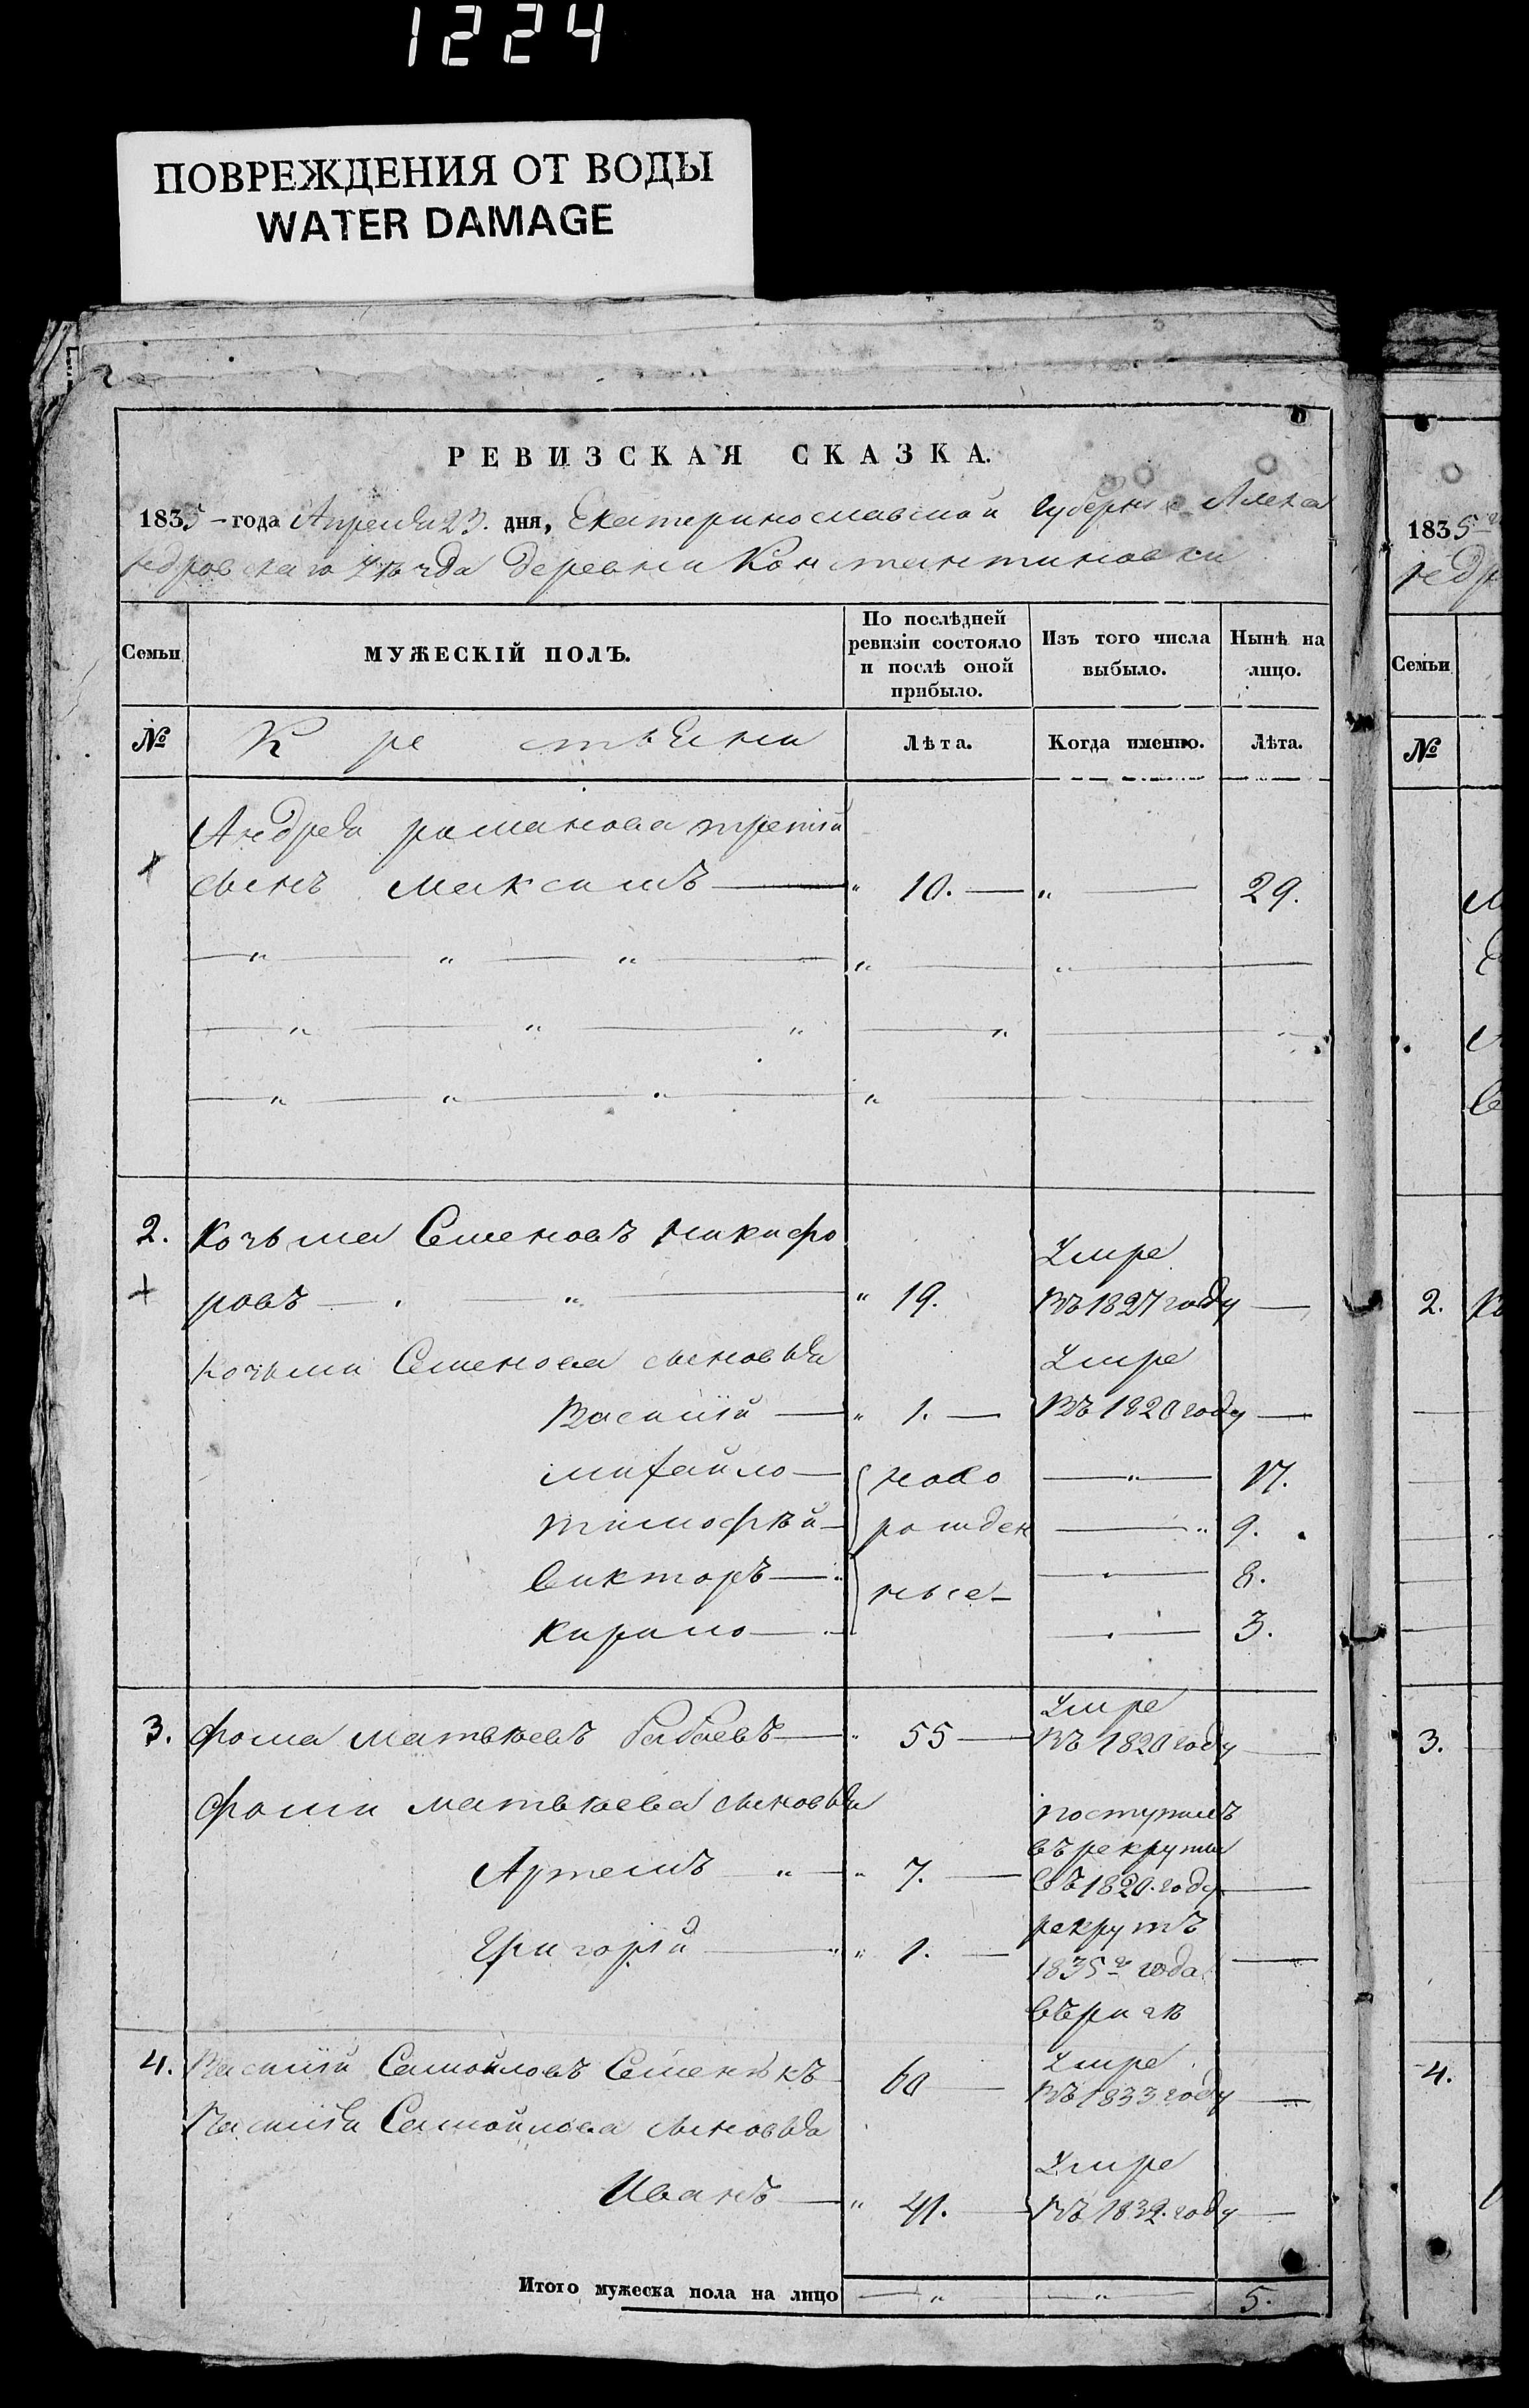 1224
ПОВРЕЖДЕНИЯ ОТ ВОДЫ
WATER DAMAGE
РЕВИЗСКАЯ СКАЗКА.
1835 - года Апреля 23. дня, Екатеринославской Губернии Алекса
ндровскаго Уѣзда деревни Константиновки
Семьи
МУЖЕСКІЙ ПОЛЪ.
По послѣдней ревизіи состояло и послѣ оной прибыло.
Изъ того числа выбыло.
Нынѣ на лицо.
№
Лѣта.
Когда именно.
Лѣта.
Андрея романова третій
сынъ максимъ — " 10. — " — 29.
2. Козьма Семеновъ никифо
Умре
ровъ — " — " 19. въ 1827 году —
Козьми Семенова сыновья
Умре
Василій — " 1. — въ 1820 году —
михайло — ново — " — 17.
тимофѣй — рожден — " 9.
викторъ — " ные — " — 8.
кирило — " — 3.
Умре
3. фома матвѣевъ бабаевъ — " 55 — въ 1820 году —
фоми матвѣева сыновья
поступилъ
въ рекруты
Артемъ — " — " 7. — въ 1820. году —
рекрутъ
Григорій — " " 1. — 1835го года —
4. Василій Самойловъ 60 —
Умре
въ 1833 году —
Василія Самойлова сыновья
Умре
Иванъ — " 41. — въ 1832. году —
Итого мужеска пола на лицо — " — " — 5.
1835го
ндр
Семьи
№
2. Ко
3.
4.